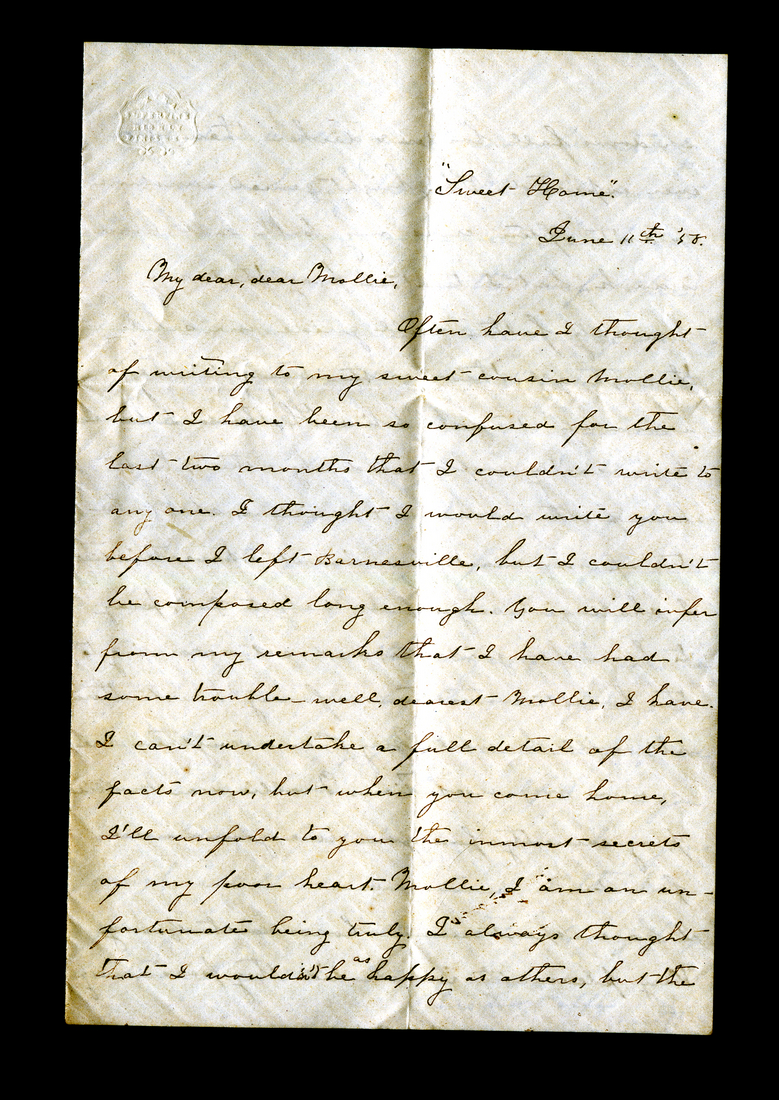 "Sweet Home".
June 11th '58.
My dear, dear Mollie,
Often have I thought
of writing to my sweet cousin Mollie,
but I have been so confused for the
last two months that I couldn't write to
any one. I thought I would write you
before I left Barnesville, but I couldn't
be composed long enough. You will infer
from my remarks that I have had
some trouble – well, dearest Mollie, I have.
I can't undertake a full detail of the
facts now, but when you come home,
I'll unfold to you the inmost secrets
of my poor heart. Mollie, I am an un-
fortunate being truly. I always thought
that I wouldn't be as happy as others, but the